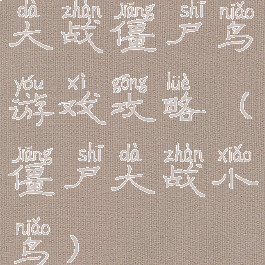 dà zhàn jiāng shī niǎo
大战僵尸鸟
yóu xì gōng lüè
游戏攻略（
jiāng shī dà zhàn xiǎo
僵尸大战小
niǎo
鸟）